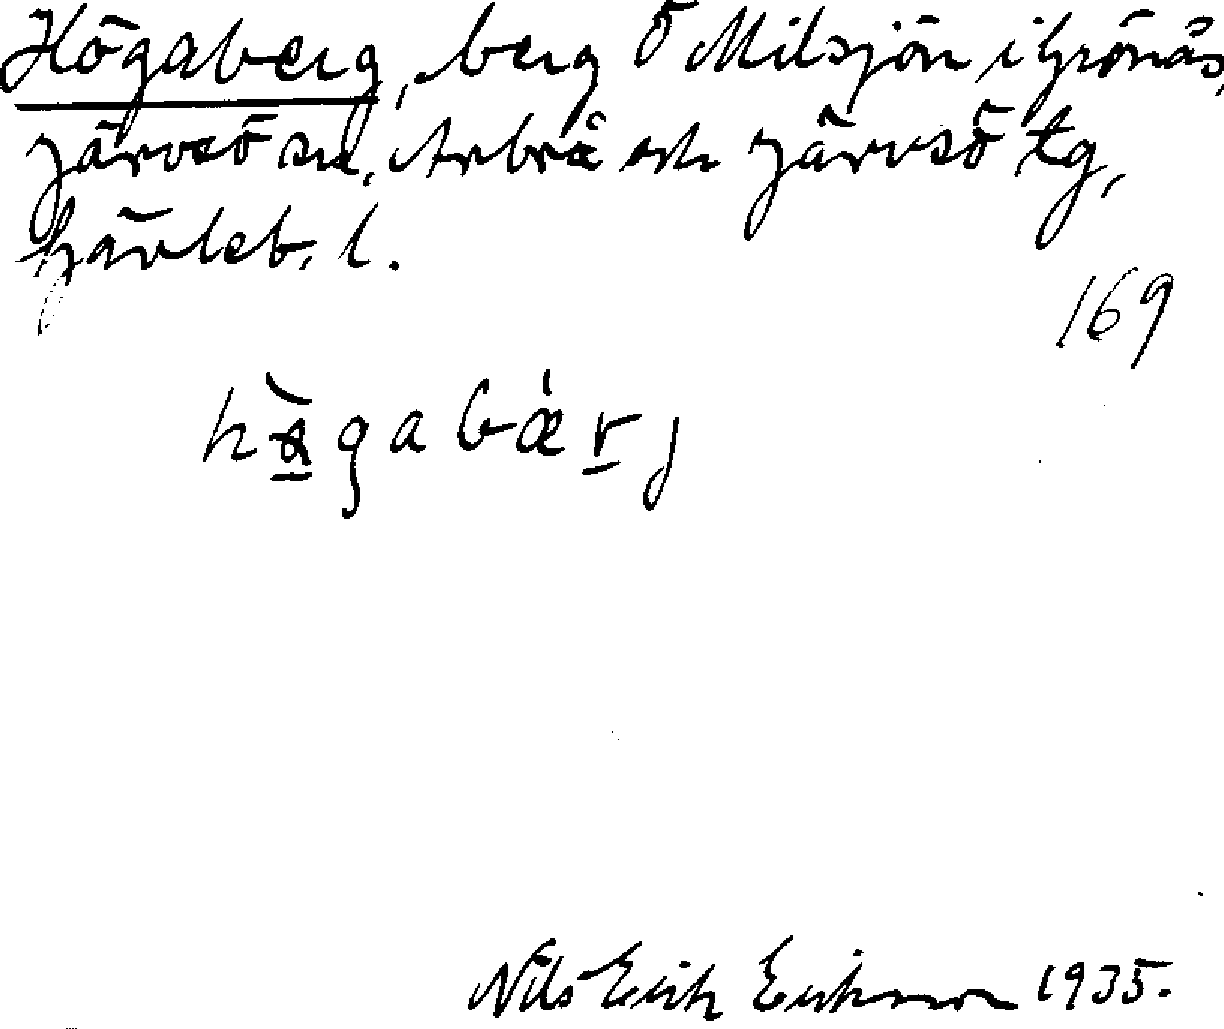 Högaberg, berg Ö Milsjön i Grönås,
Järvsö sn, Arbrå och Järvsö tg,
Gävleb. l.
169
Nils Erik Eriksson 1935.